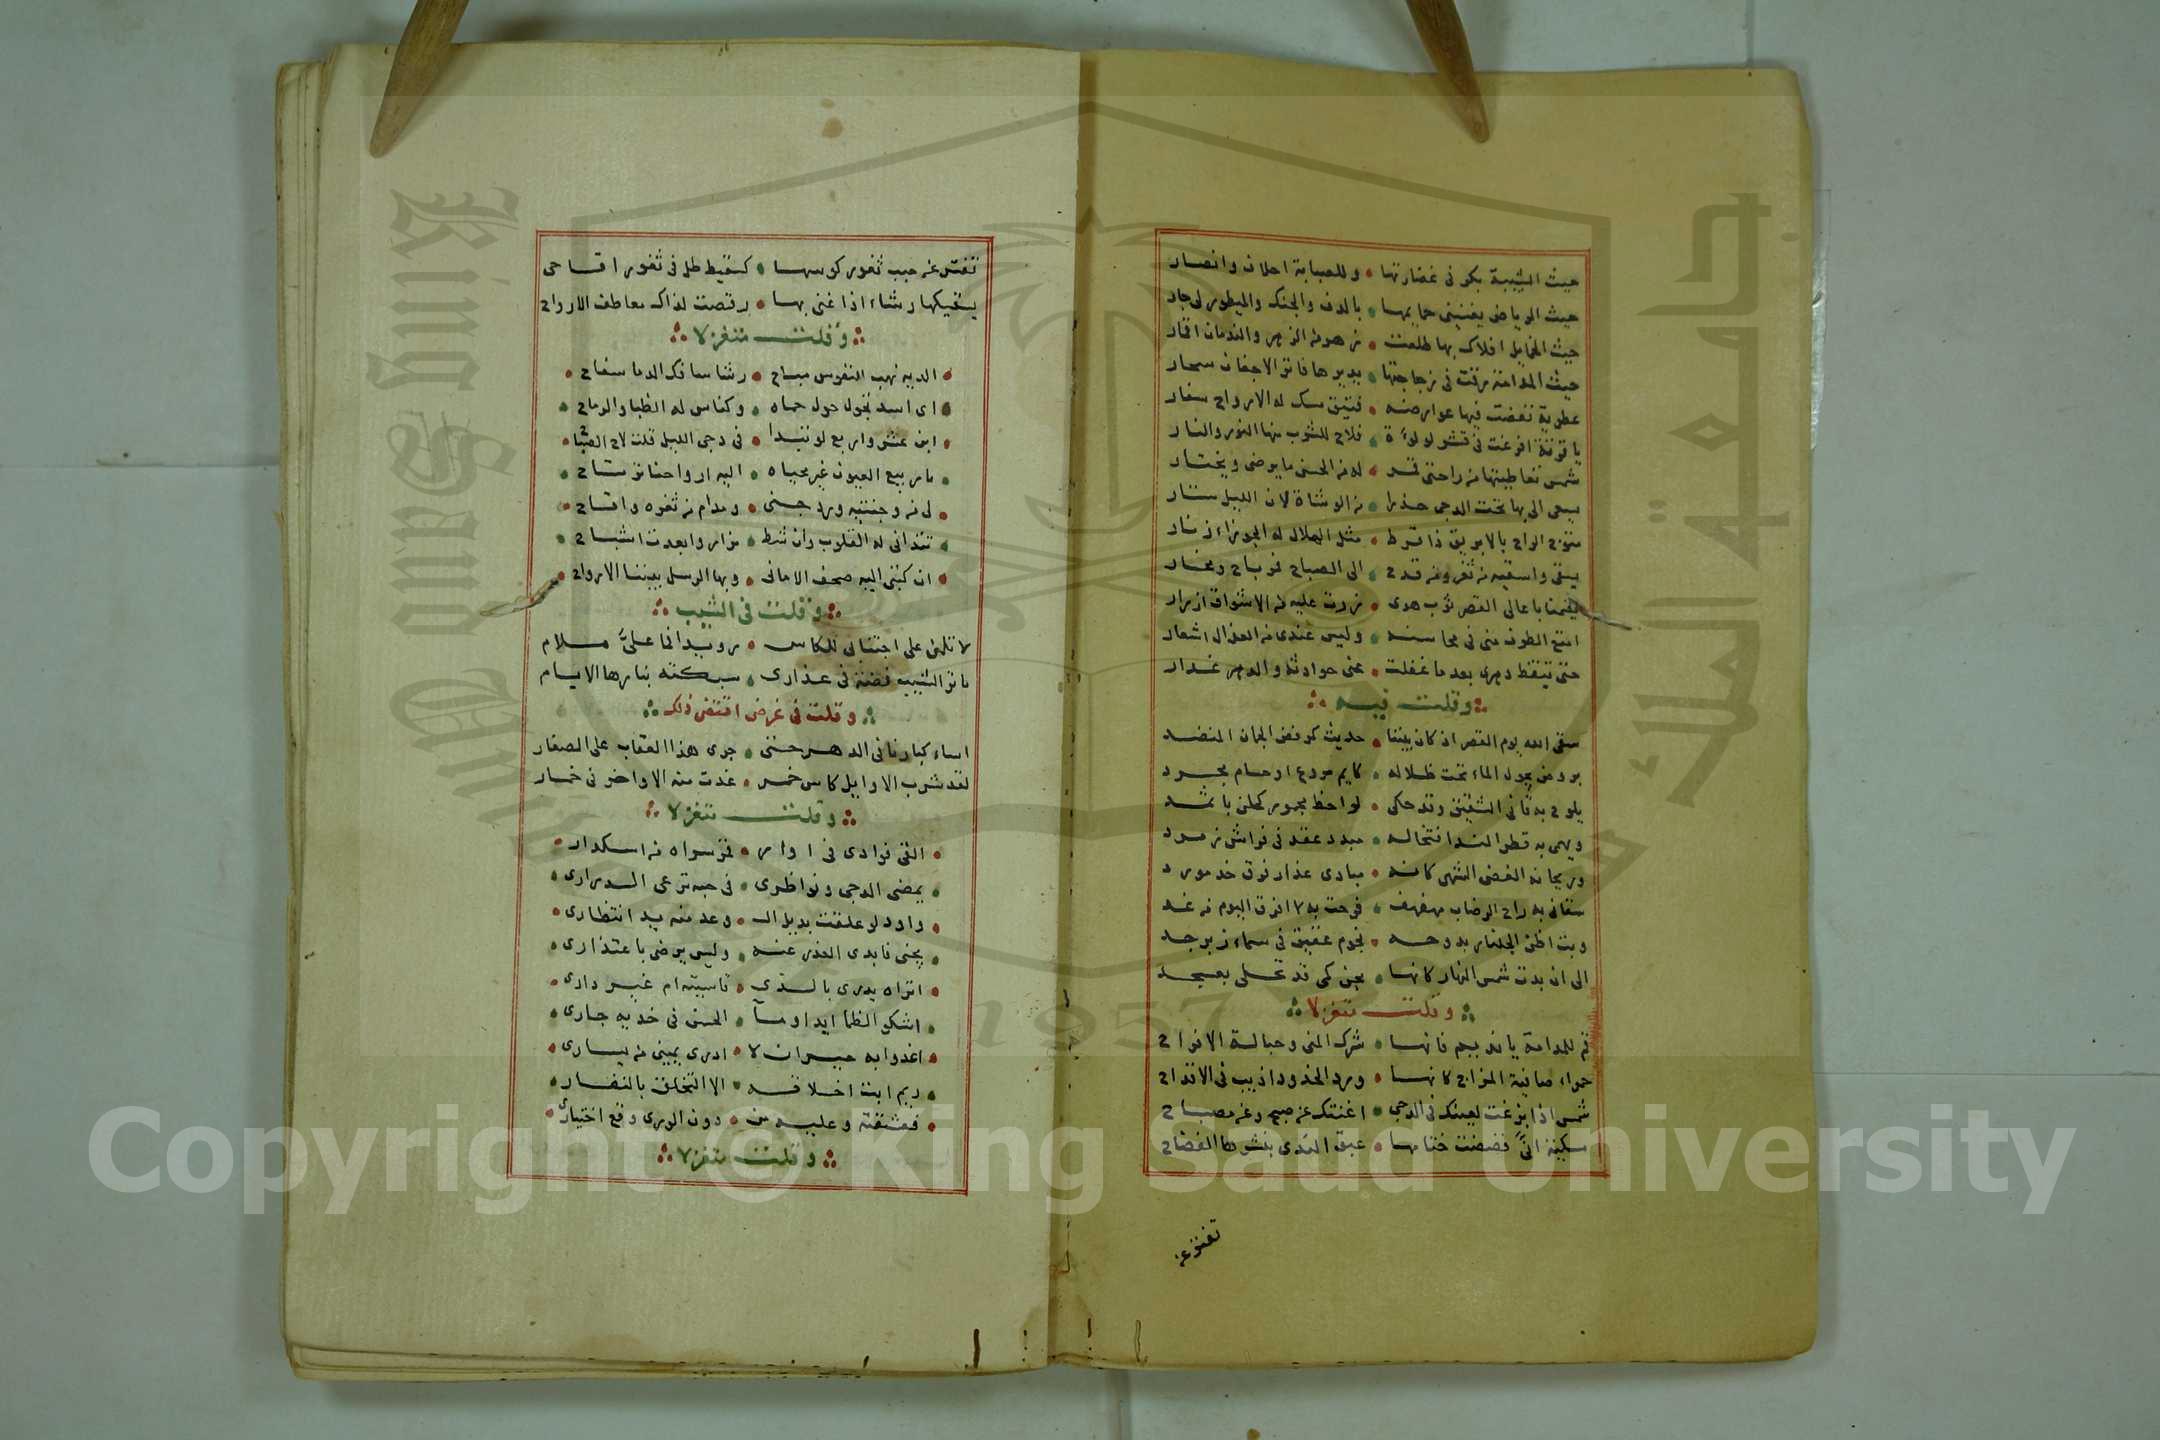 حيث الشبيبة بكر فى غضارتها • وللصبابة احلاف وانصار
حيث الرياض يغنينى حمايمها • بالدف والجنك والميطور لى جار
حيث الخمايل افلاك بها طلعت • زهر من الزهر والندمان اقمار
حيث المدامة رقت فى زجاجتها • يديرها فاتر الاجفان سحار
عطرية نفضت فيها عوارضه • فتيق مسك له الارواح سفار
ياقوتة افرغت فى قشر لولوءة • فلاح للشرب منها النور والنار
شمس تعاطيتها من راحتى قمر • له من الحسن ما يرضى ويختار
يسعى الى بها تحت الدجى حذرا • من الوشاة لان الليل ستار
متوج الراح بالابريق ذا قرط • مثل الهلال له الجوزاء زنار
يسقى واسقيه من ثغر ومن قدح • الى الصباح
باعالى القصر ثوب هوى • زرت عليه من الاشواق ازرار
امتع الطرف منى فى محاسنه • وليس عندى من العذال اشعار
حتى تيقظ دهرى بعد ما غفلت • عنى حوادثه والدهر غدار
وقلت فيه
سقى الله يوم القصر اذ كان بيننا • حديث كرفض الجمان المنضد
بروض يجول الماء تحت ظلاله • كايم مروع او حسام مجرد
يلوح به قانى الشقيق وقد حكى • لواحظ مخمور كحلن باثمد
ويهمى به قطر الندا فتخاله • مبدد عقد فى فراش زمرد
وريحانه الغض الشهى كانه • مبادى عذار فوق خد مورد
سقانى به راح الرضاب مهفهف • فرحت به لا افرق اليوم من غد
وبت اظن الجلنار بدوحه • نجوم عقيق فى سماء زبرجد
الى ان بدت شمس النهار كانها • مجن كمى قد تحلى بعسجد
وقلت متغزلا
قم للمدامة يا نديم فانها • شرك المنى وحبالة الافراح
حمراء صافية المزاج كانها • ورد الخدود اذيب فى الاقداح
شمس اذا بزغت لعينك فى الدجى • اغنتك عن صبح وعن مصباح
مسكية انى فضضت ختامها • عبق الندى بنشرها الفضاح
تفتر عن
تفتر عن حبب ثغور كوسها • كسقيط طل فى ثغور اقاحى
يسقيكها رشاء اذا غنى بها • رقصت لذاك معاطف الارواح
وقلت متغزلا
• الديه نهب النفوس مباح • رشا سافك الدما سفاح •
• اى اسد تجول حول حماه • وكناس له الظبا والرماح •
• ابن عشر واربع لو تبدا • فى دجى الليل قلت لاح الصباح •
• ما ربيع العيون غير محياه • اليه ارواحنا ترتاح •
• لى من وجنتيه ورد جنى • ومدام من ثغره واقاح •
• تتدانى له القلوب وان شط • مزار وابعدت اشباح •
• ان كتبى اليه صحف الامانى • وبها الرسل بيننا الارواح •
وقلت فى الشيب
لا تلمنى على اجتنابى للكاس • رويدا فما علىّ ملام
ما ترا الشيب فضة فى عذارى • سبكته بنارها الايام
وقلت فى غرض اقتضى ذلك
اساء كبارنا فى الدهر حتى • جرى هذا العقاب على الصغار
لقد شرب الاوايل كاس خمر • غدت منه الاواخر فى خمار
وقلت متغزلا
• القى فوادى فى اوار • قمر سواه من اسكدار •
• يمضى الدجى ونواظرى • فى حبه ترعى الدرارى •
• واود لو علقت بديل الـ • وعد منه يد انتظارى •
• يجنى فابدى العذر عنه • وليس يرضى باعتذارى •
• اتراه يدرى بالذى • قاسيته ام غير دارى •
• اشكو الظما ابدا وما • الحسن فى خديه جارى •
• اغدوا به حيران لا • ادرى يمينى من يسارى •
• ريم ابت اخلاقه • الا التخلق بالنفار •
• فعشقته وعليه من • دون الورى وقع اختيارى •
وقلت متغزلا
Copyright © King Saud University
King Saud University
جامعة الملك سعود
1957